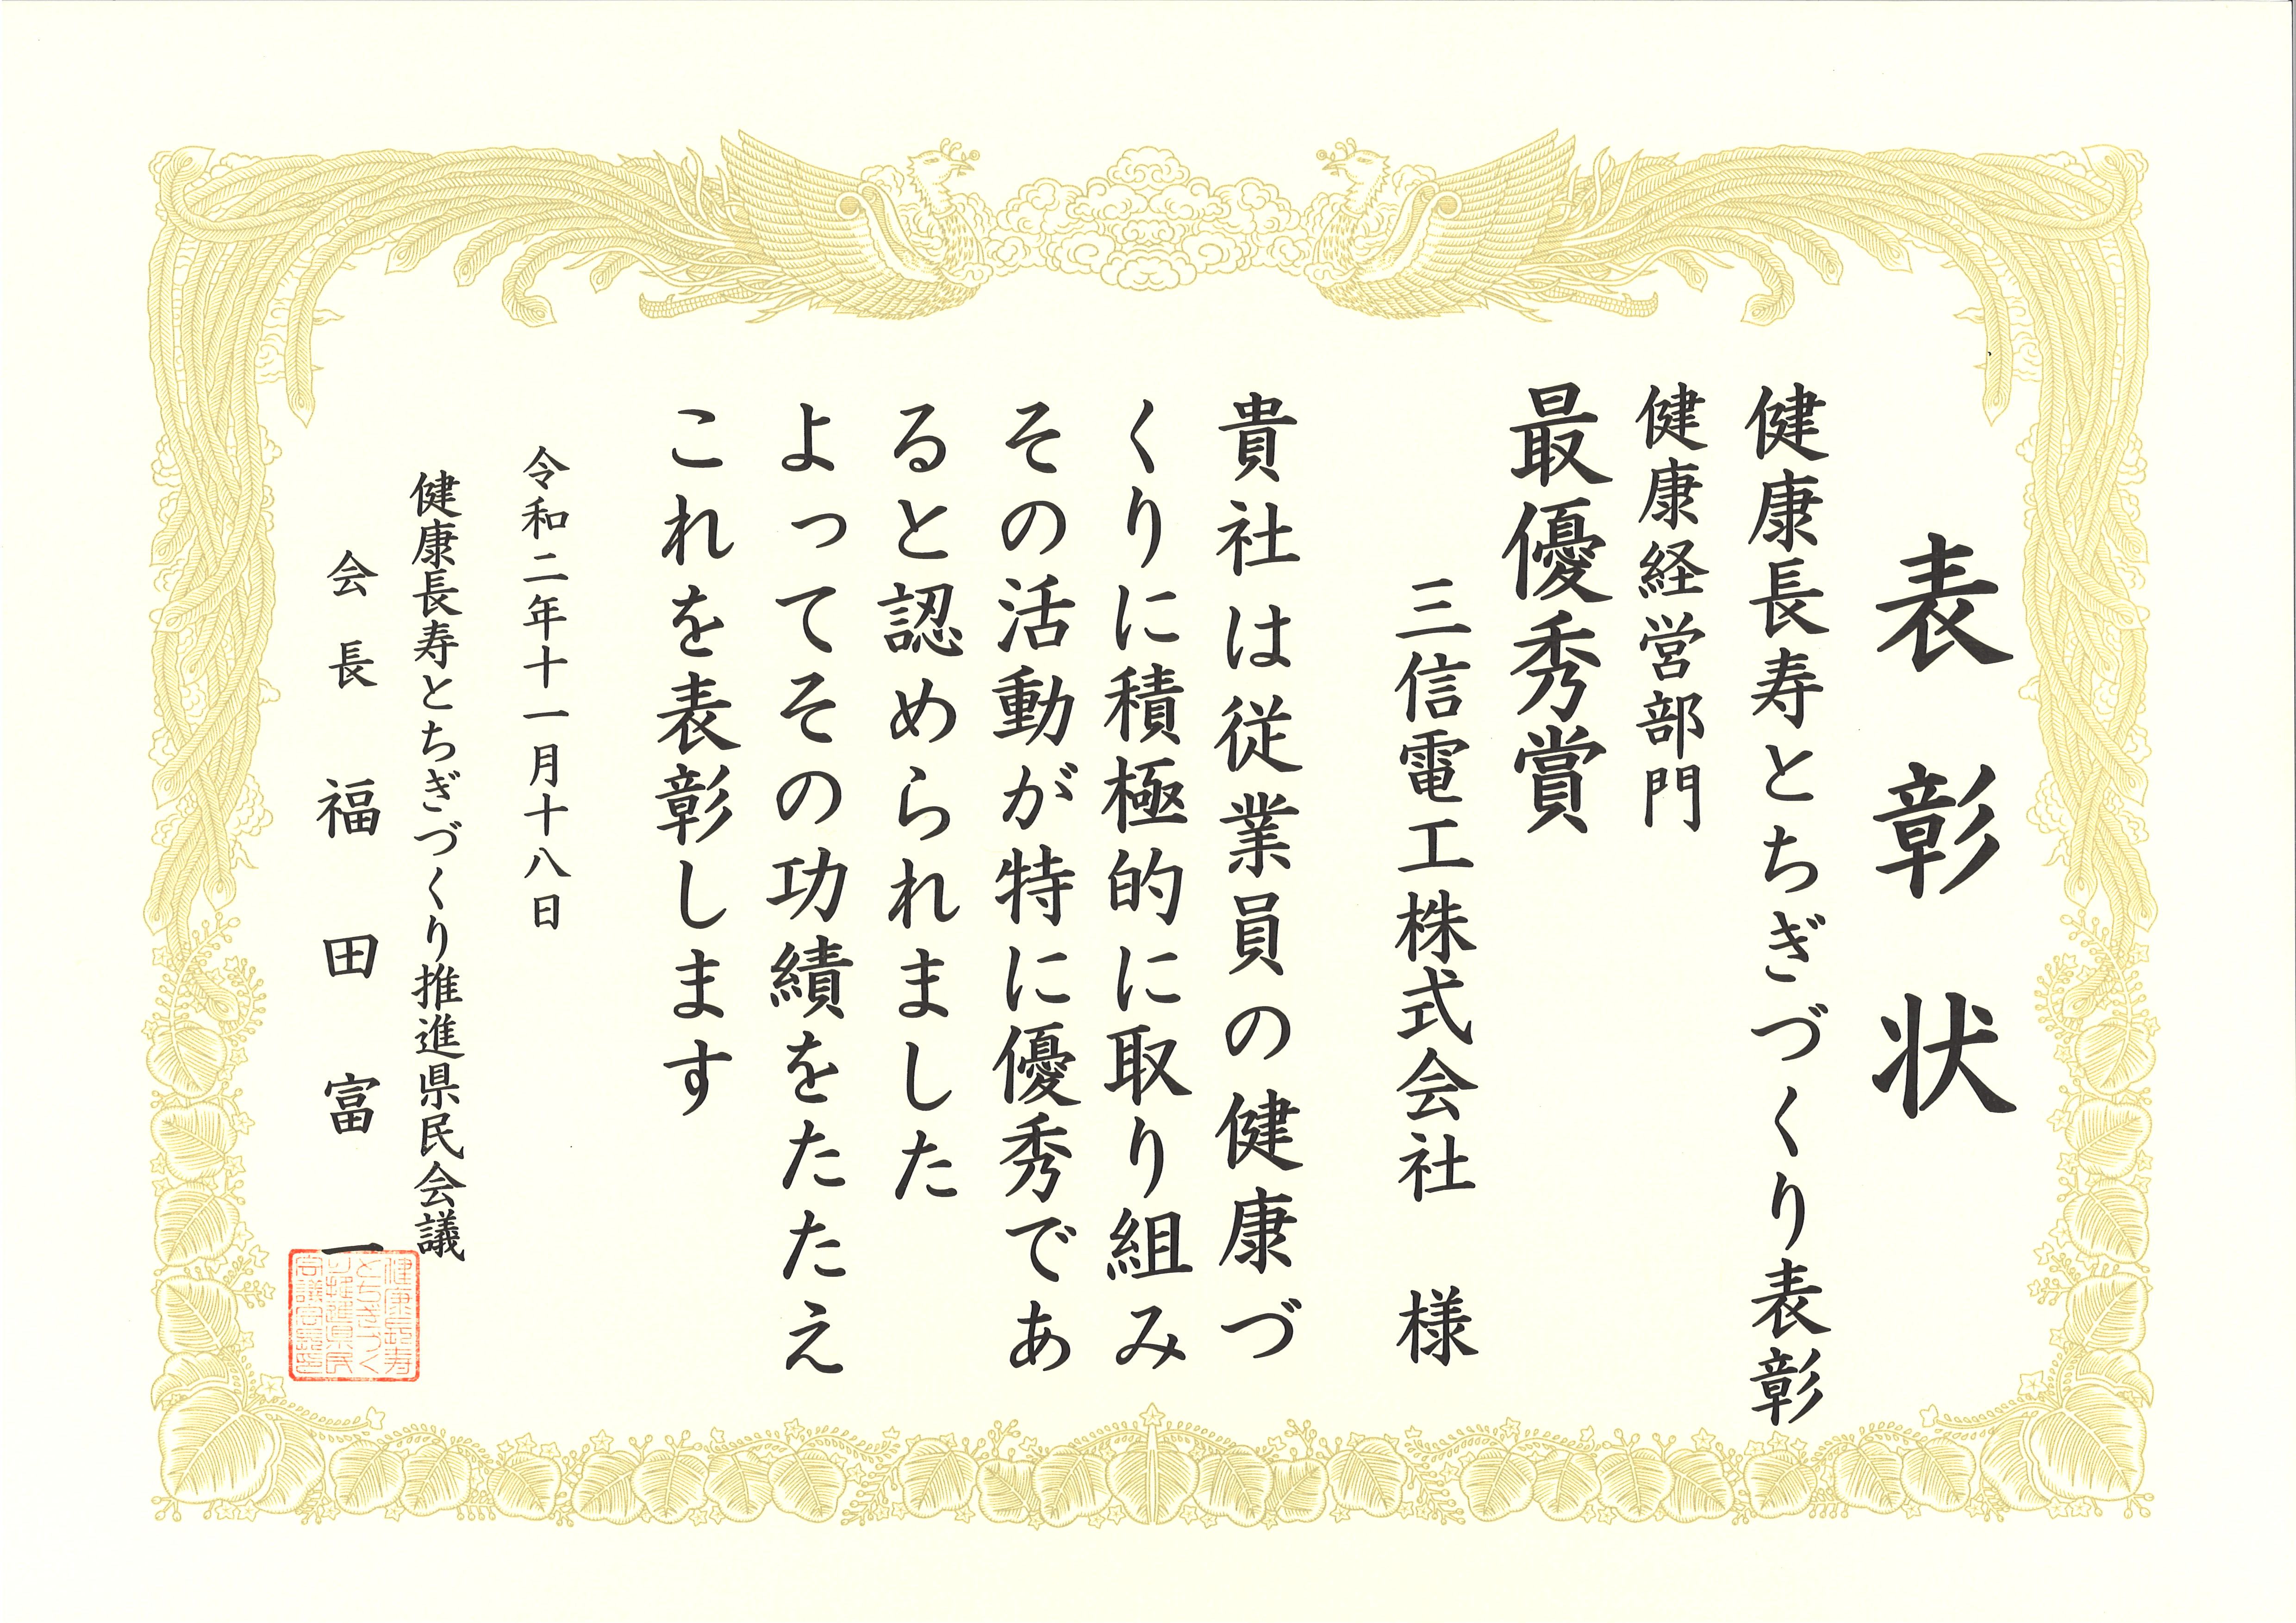 表彰状
健康長寿とちぎづくり表彰
健康経営部門
最優秀賞
三信電工株式会社 様
貴社は従業員の健康づ
くりに積極的に取り組み
その活動が特に優秀であ
ると認められました
よってその功績をたたえ
これを表彰します
令和二年十一月十八日
健康長寿とちぎづくり推進県民会議
会長 福田富一
健康長寿
とちぎづく
り推進県民
会議会長印